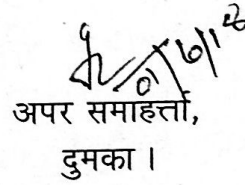 अपर समाहर्त्ता,
दुमका ।